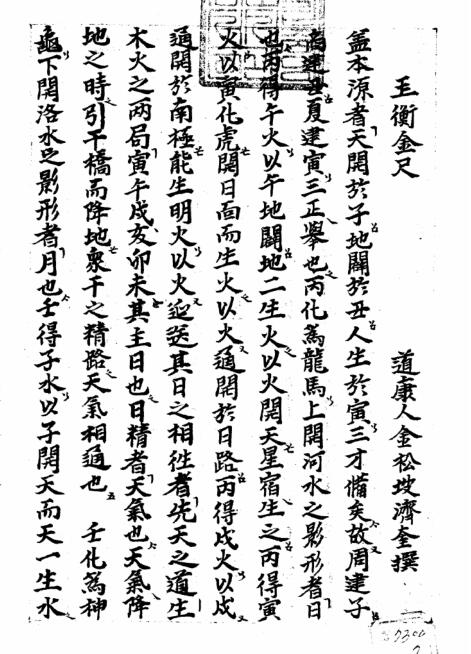 玉衡金尺　道康人金松坡濟奎撰
盖本源者天開於子地闢於丑人生於寅三才備矣故周建子
商建丑夏建寅三正擧也丙化爲龍馬上開河水之影形者日
也丙得午火以午地闢地二生火以火開天星宿生之丙得寅
火以寅化虎開日面而生火以火通開於日路丙得戌火以戌
通開於南極能生明火以火迎送其日之相徃者先天之道生
木火之两局寅午戌亥卯未其主日也日精者天氣也天氣降
地之時引干橋而降地衆干之精路天氣相通也　壬化爲神
龜下開洛水之影形者月也壬得子水以子開天而天一生水